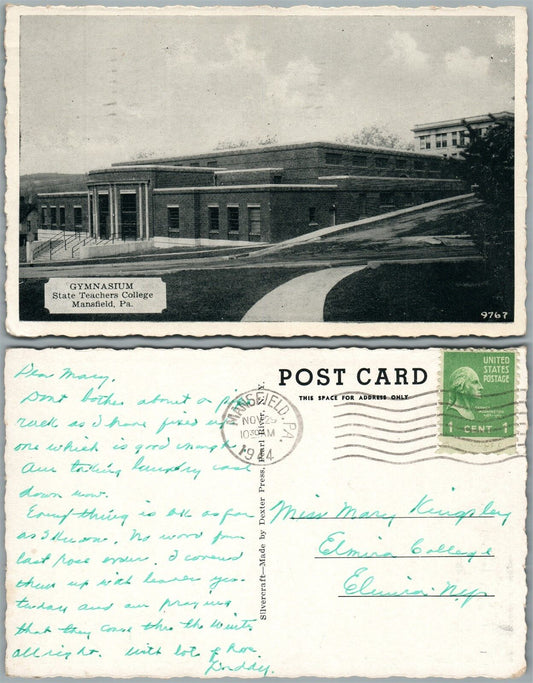 GYMNASIUM
State Teachers College
Mansfield, Pa.
9767
POST CARD
THIS SPACE FOR ADDRESS ONLY
MANSFIELD, PA.
NOV 2
10 30 AM
1944
UNITED
STATES
POSTAGE
1 CENT 1
Silvercraft—Made by Dexter Press, Pearl River, N.Y.
Dear Mary,
Dont bother about a
rack as I have fixed
one which is good enough
Am taking laundry case
down now.
Everything is ok as far
as I know. No word from
last rose order. I covered
them up with leaves yes-
terday and am praying
that they come thru the winter
all right. With lots of love
Daddy.
Miss Mary Kingsley
Elmira College
Elmira N.Y.